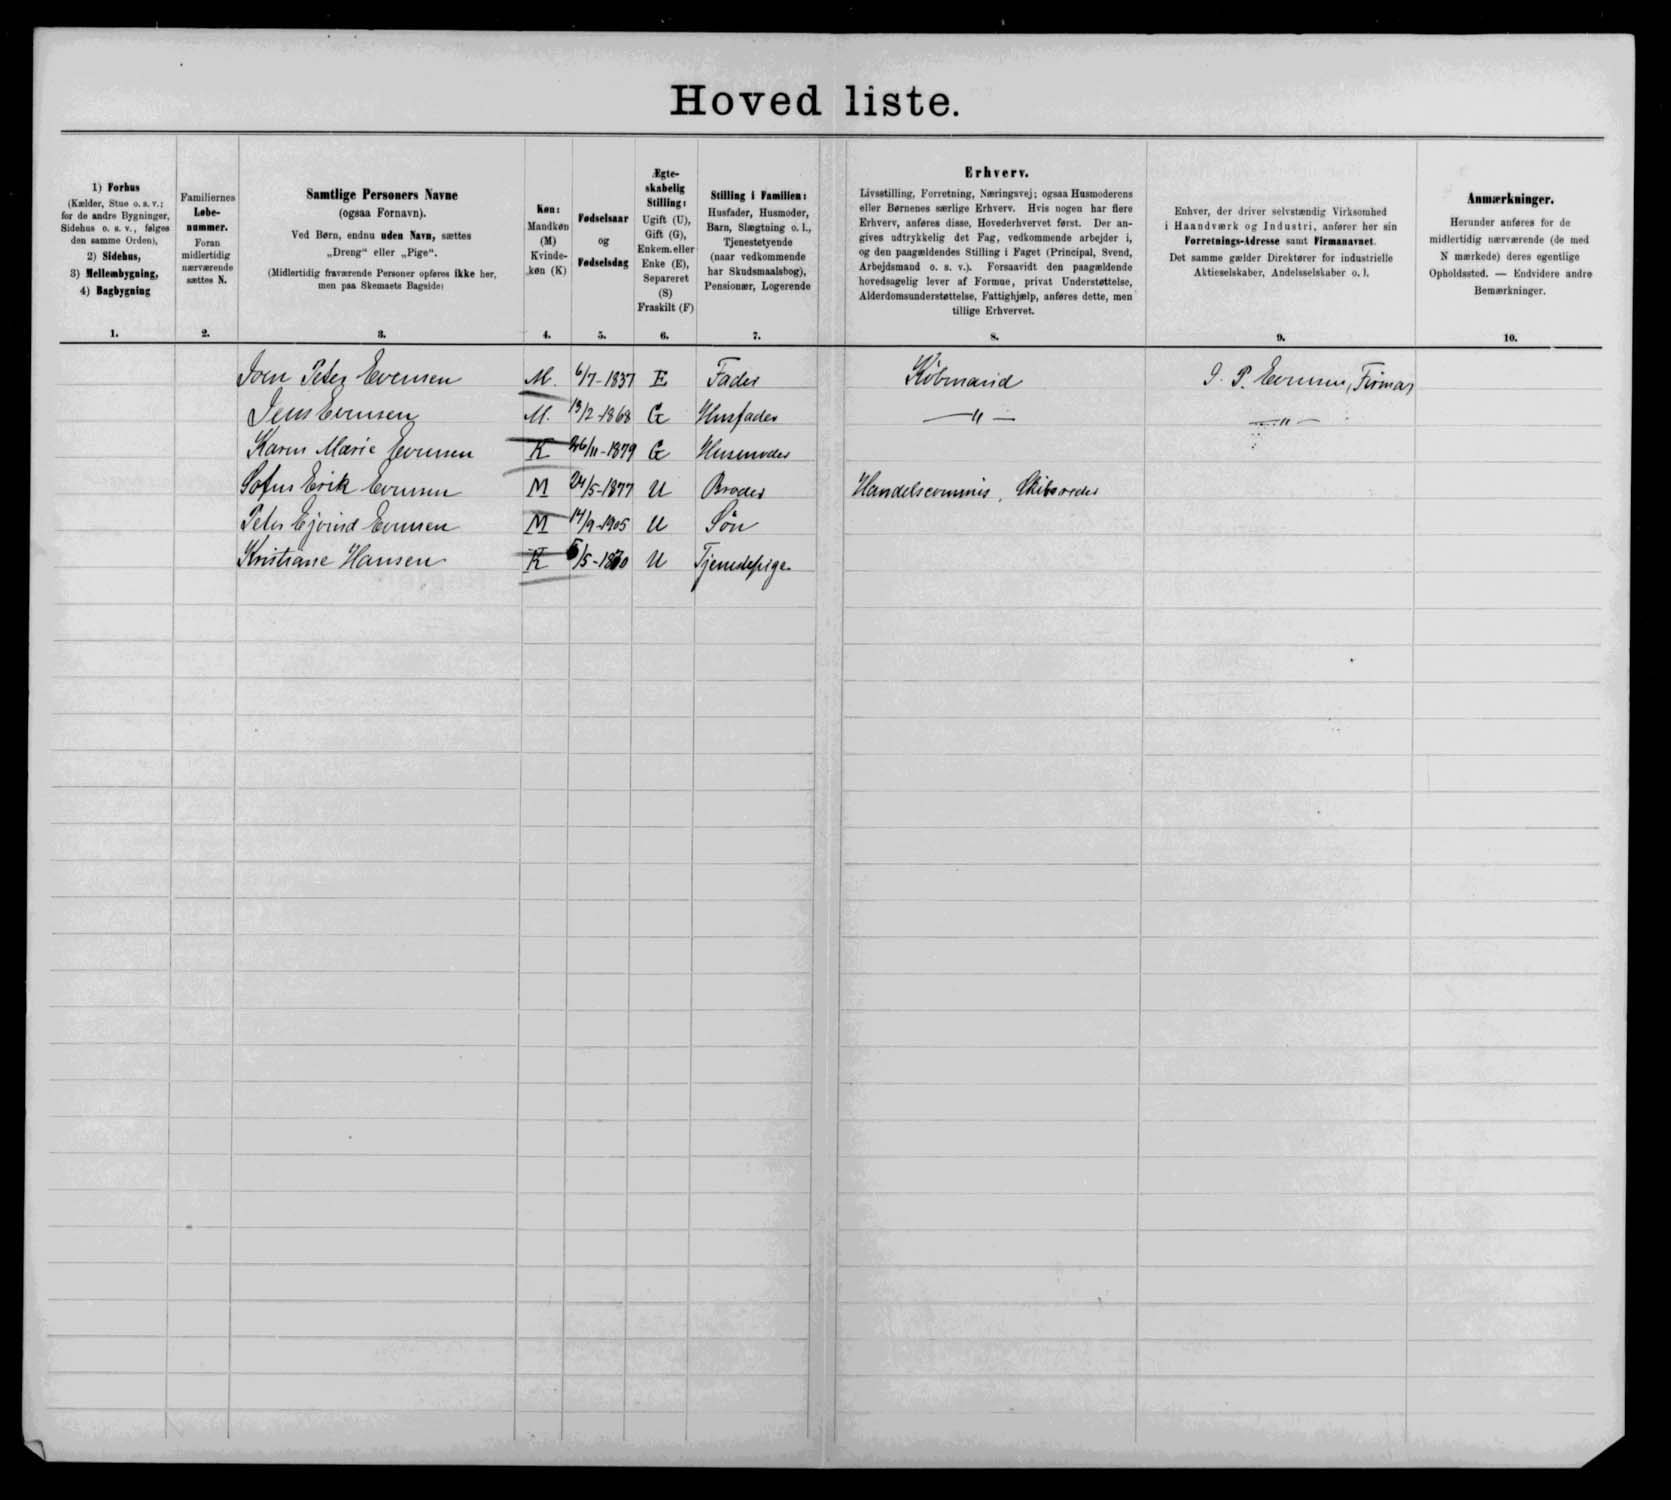 Hoved liste.
1) Forhus
(Kælder, Stue o. s. v.;
for de andre Bygninger,
Sidehus o. s. v., følges
den samme Orden),
2) Sidehus,
3) Mellembygning,
4) Bagbygning
1.
Familiernes
Løbe-
nummer.
Foran
midlertidig
nærværende
sættes N.
2.
Samtlige Personers Navne
(ogsaa Fornavn).
Ved Børn, endnu uden Navn, sættes
„Dreng“ eller „Pige“.
(Midlertidig fraværende Personer opføres ikke her,
men paa Skemaets Bagside)
3.
Køn:
Mandkøn
(M)
Kvinde-
køn (K)
4.
Fødselsaar
og
Fødselsdag
5.
Ægte-
skabelig
Stilling:
Ugift (U),
Gift (G),
Enkem. eller
Enke (E),
Separeret
(S)
Fraskilt (F)
6.
Stilling i Familien:
Husfader, Husmoder,
Barn, Slægtning o. l.,
Tjenestetyende
(naar vedkommende
har Skudsmaalsbog),
Pensionær, Logerende
7.
Erhverv.
Livsstilling, Forretning, Næringsvej; ogsaa Husmoderens
eller Børnenes særlige Erhverv. Hvis nogen har flere
Erhverv, anføres disse, Hovederhvervet først. Der an-
gives udtrykkelig det Fag, vedkommende arbejder i,
og den paagældendes Stilling i Faget (Principal, Svend,
Arbejdsmand o. s. v.). Forsaavidt den paagældende
hovedsagelig lever af Formue, privat Understøttelse,
Alderdomsunderstøttelse, Fattighjælp, anføres dette, men
tillige Erhvervet.
8.
Enhver, der driver selvstændig Virksomhed
i Haandværk og Industri, anfører her sin
Forretnings-Adresse samt Firmanavnet.
Det samme gælder Direktører for industrielle
Aktieselskaber, Andelsselskaber o. l.
9.
Anmærkninger.
Herunder anføres for de
midlertidig nærværende (de med
N mærkede) deres egentlige
Opholdssted. — Endvidere andre
Bemærkninger.
10.
Peter Evensen M. 6/7-1837 E Fader Købmand J. P. Evensen, Firma
Jens Evensen M. 13/2-1868 G Husfader —"— —"—
Karen Marie Evensen K 26/11-1879 G Husmoder
Sofus Erik Evensen M 24/5-1877 U Broder Handelscommis, Skibsreder
Peter Ejvind Evensen M 14/9-1905 U Søn
Kristiane Hansen K U Tjenestepige